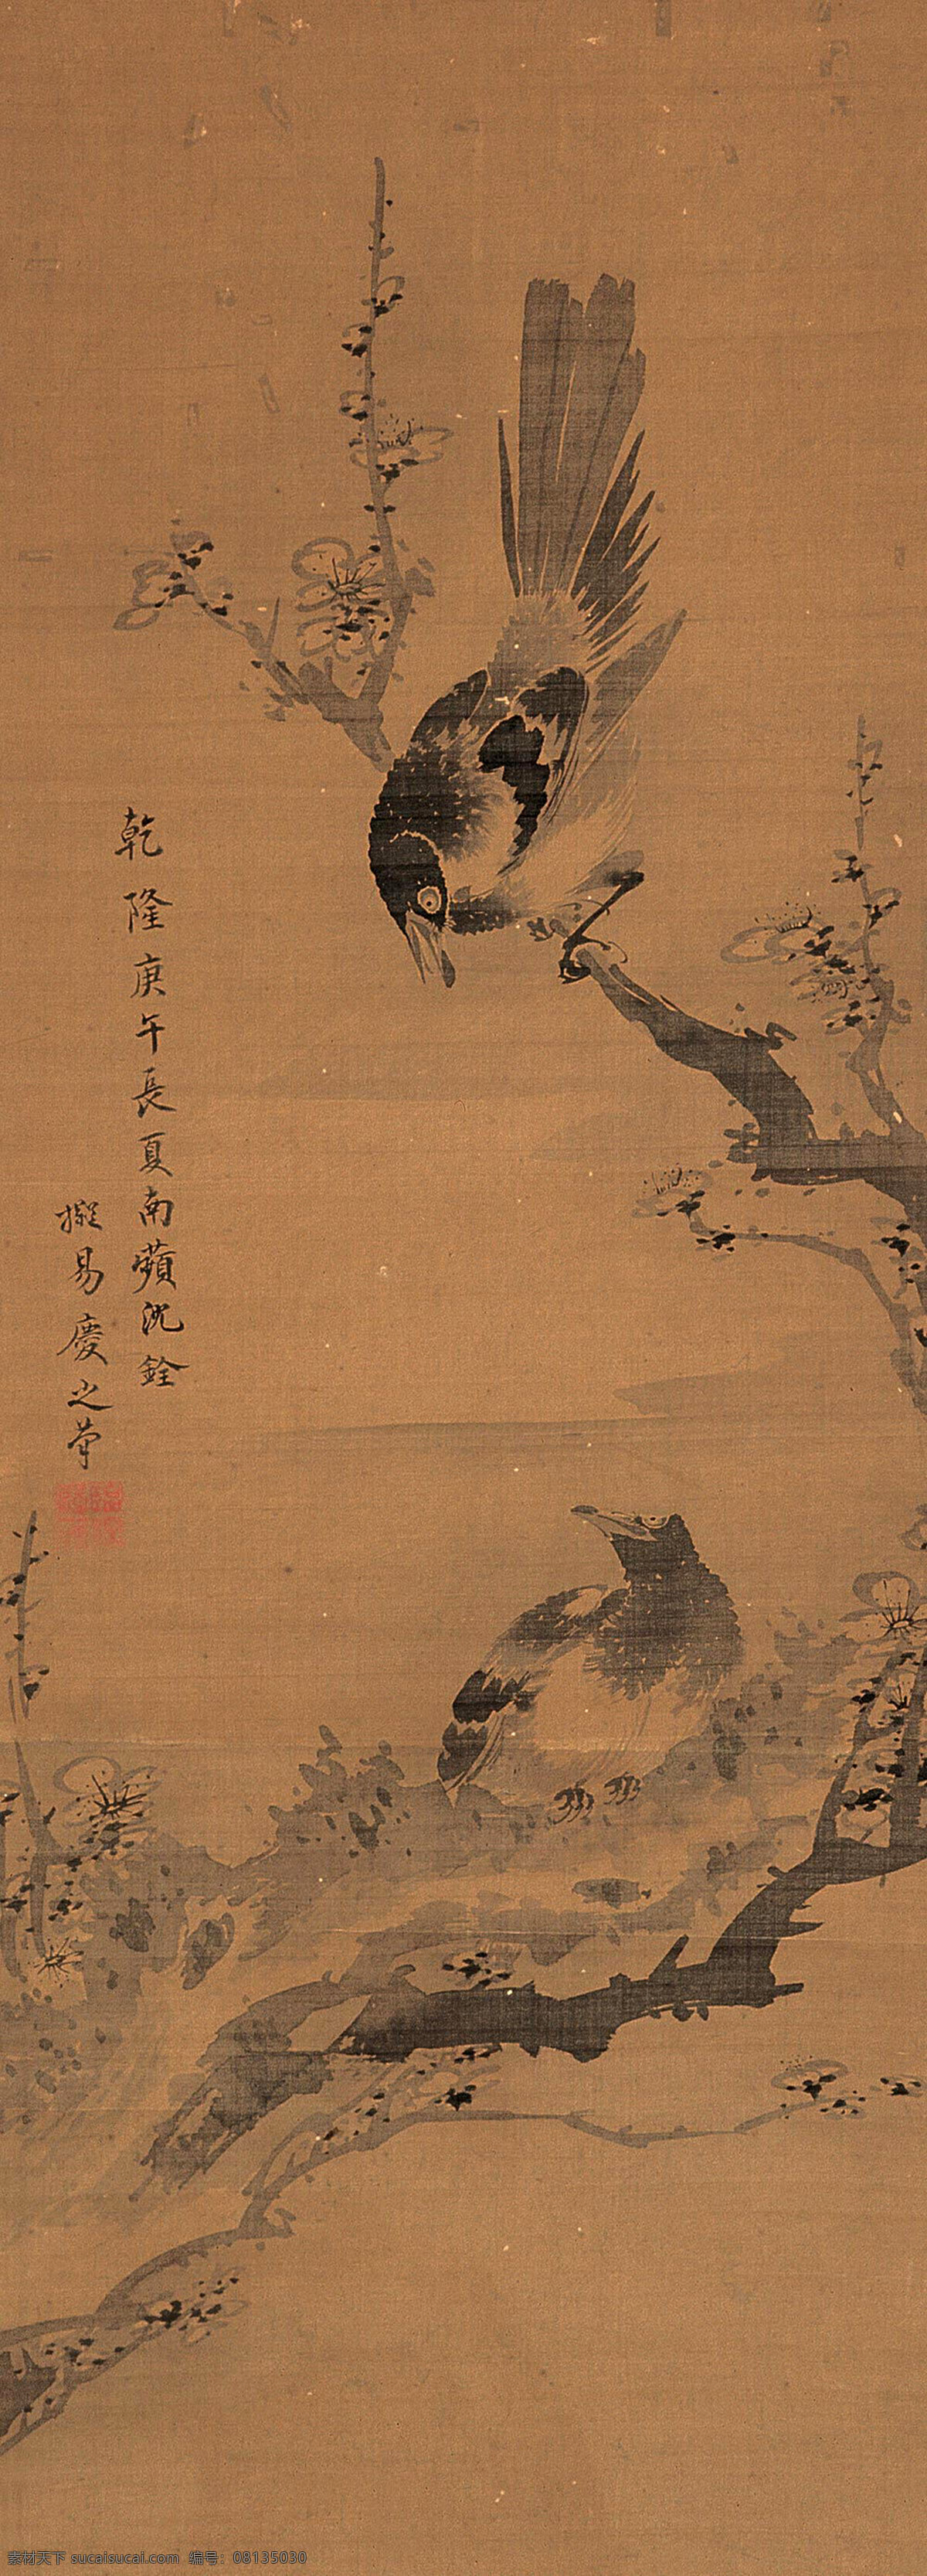 乾隆庚午長夏南蘋沈銓
擬易慶之筆
素材天下 sucaisucai.com 编号：08135030